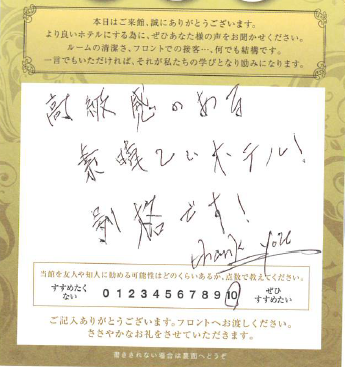 本日はご来館、誠にありがとうございます。
より良いホテルにする為に、ぜひあなた様の声をお聞かせください。
ルームの清潔さ、フロントでの接客…、何でも結構です。
一言でもいただければ、それが私たちの学びとなり励みになります。
高級感のある
素晴しいホテル!
です!
thank you
当館を友人や知人に勧める可能性はどのくらいあるか、点数で教えてください。
すすめたくない 0 1 2 3 4 5 6 7 8 9 10 ぜひすすめたい
ご記入ありがとうございます。フロントへお渡しください。
ささやかなお礼をさせていただきます。
書ききれない場合は裏面へどうぞ